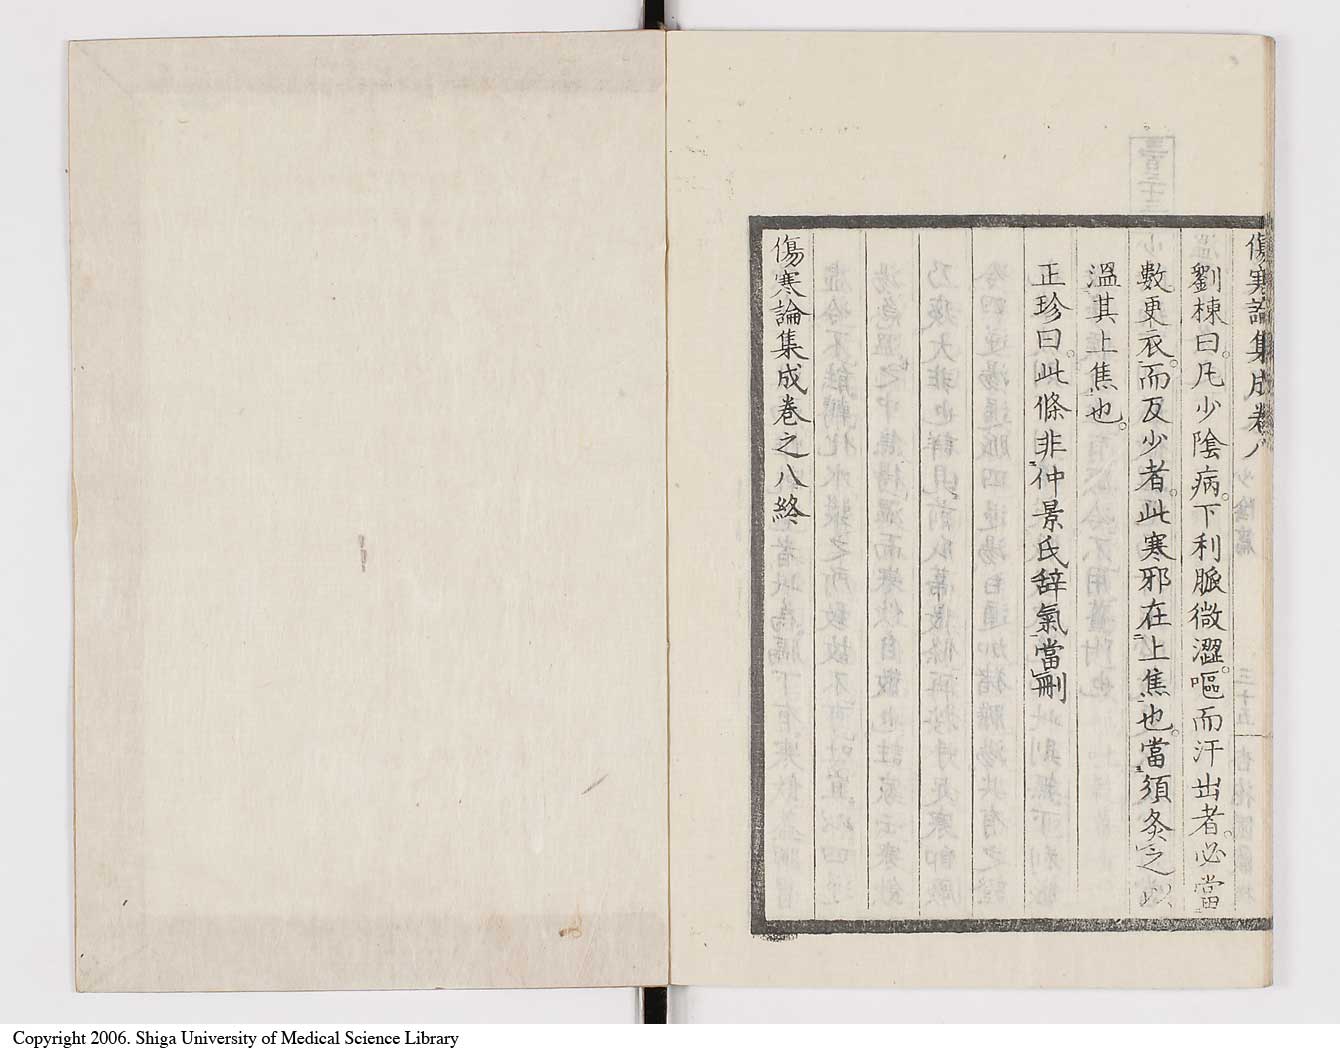 傷寒論集成卷八 少陰篇 三十五
劉棟曰。凡少陰病。下利脈微澀。嘔而汗出者。必當
數更衣。而反少者。此寒邪在上焦也。當須灸之以
溫其上焦也。
正珍曰。此條非仲景氏辭氣當刪
傷寒論集成卷之八終
Copyright 2006. Shiga University of Medical Science Library